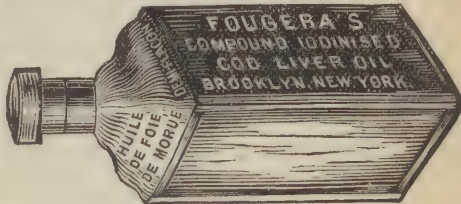 FOUGERA'S
COMPOUND IODINISED
COD LIVER OIL
BROOKLYN, NEW YORK.
HUILE
DE FOIE
DE MORUE